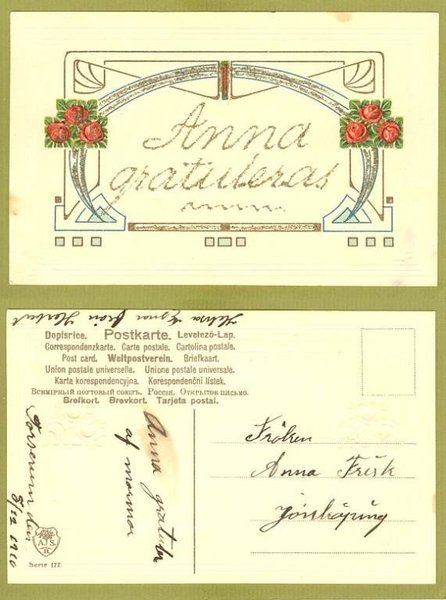 Anna
gratuleras
Helsa Ignar från Herbert
Dopisnice. Postkarte. Levelező-Lap.
Correspondenzkarte. Carte postale. Cartolina postale.
Post card. Weltpostverein. Briefkaart.
Union postale universelle. Unione postale universale.
Karta korespondencyjna. Korespondenční lístek.
Всемірный почтовый союзъ. Россія. Открытое письмо.
Brefkort. Brevkort. Tarjeta postal.
Anna gratula
af mormor
Forserum den
8/12 1910
Fröken
Anna Frisk
Jönköping
A. S.
B.
Serie 177